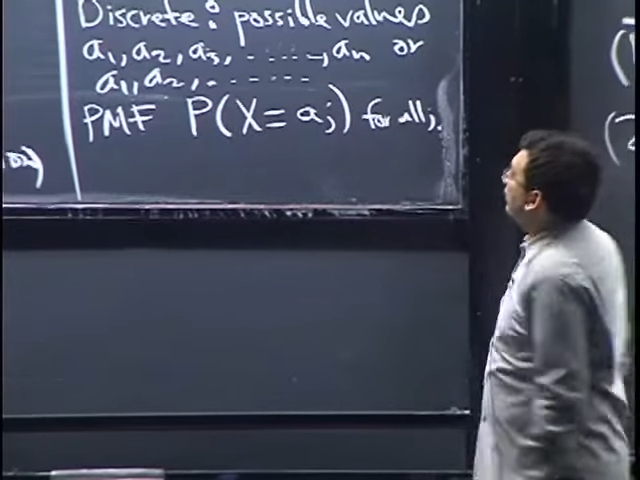 Discrete: possible values
a₁, a₂, a₃, ....., aₙ or
a₁, a₂, .......
PMF P(X = aⱼ) for all j.